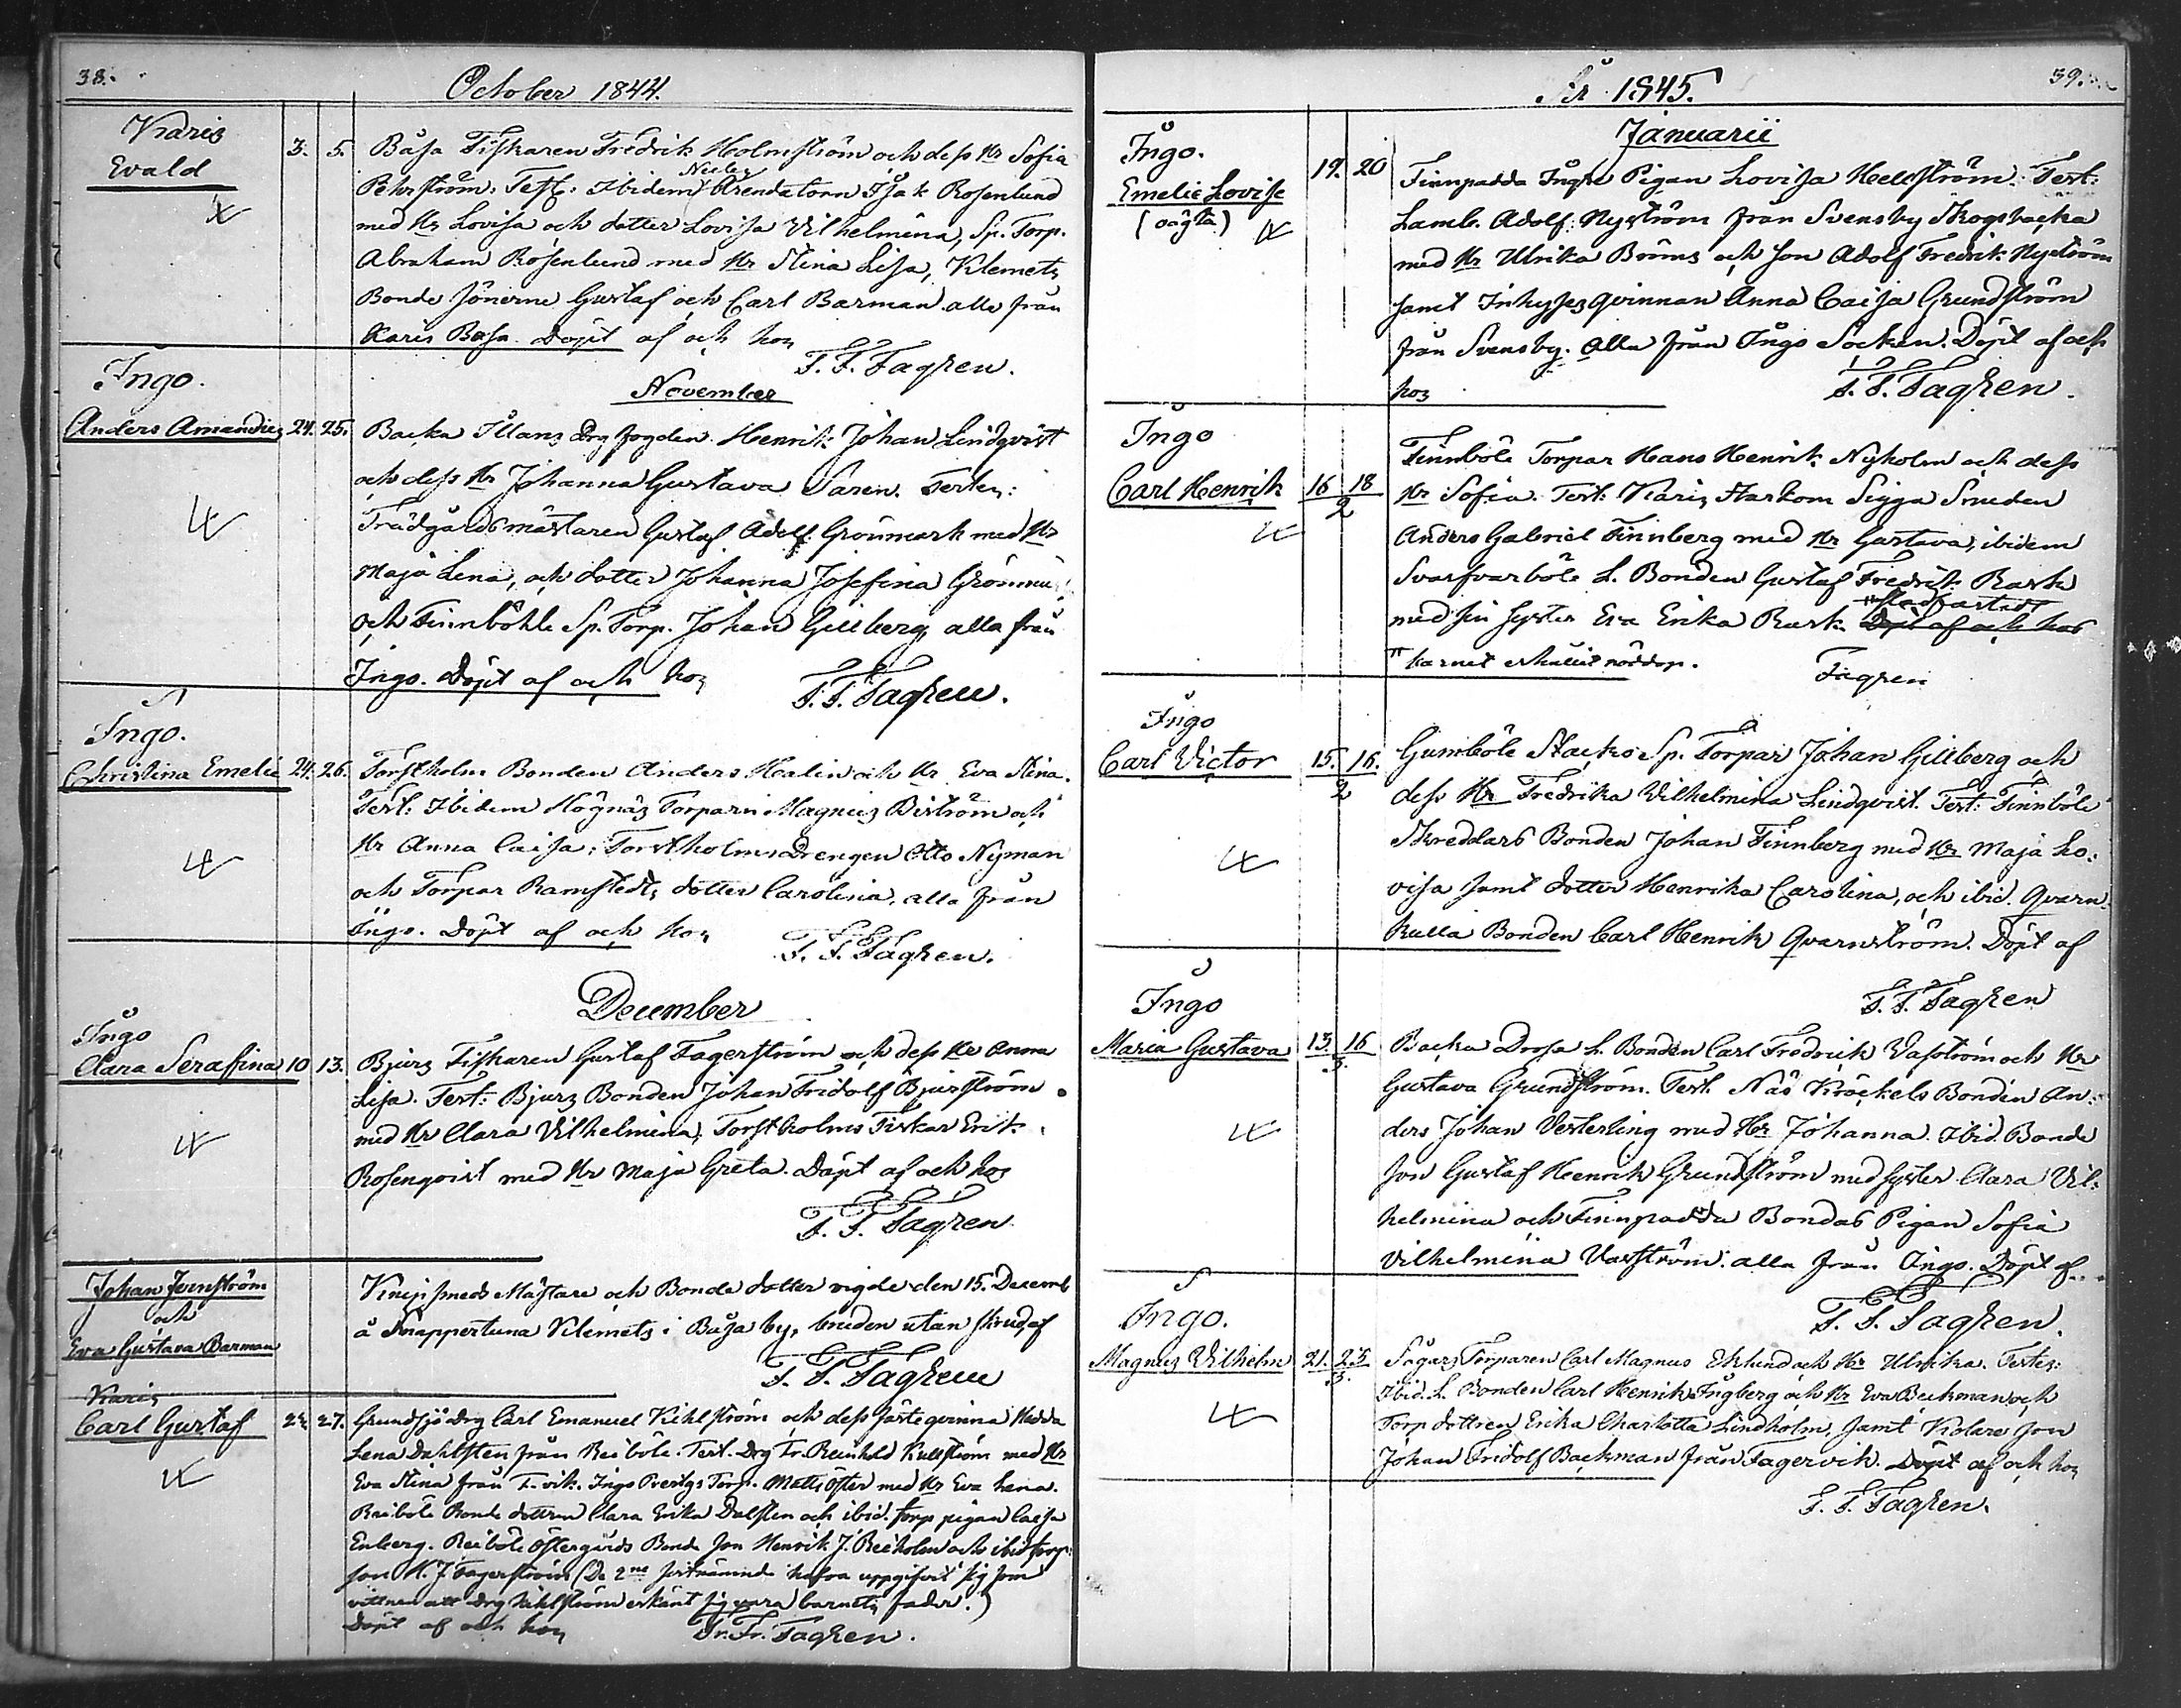 38.
October 1844.
Karis
Evald
3. 5. Båsa Fiskaren Fredrik Holmström och dess Hr Sofia
Nillas
Pehrström. Test: Ibidem Arendatorn Isak Rosenlund
med Hr Lovisa och dotter Lovisa Vilhelmina, Sp. Torp.
Abraham Rosenlund med Hr Stina Lisa, Klemets
Bonde Sönerne Gustaf och Carl Barman alla från
Karis Båsa. Döpt af och hos
F. F. Fagren.
November
Ingo.
Anders Amandus 24. 25. Backa Illans Drg fogden Henrik Johan Lindqvist
och dess Hr Johanna Gustava Saren. Testes:
Trädgårdsmästaren Gustaf Adolf Grönmark med Hr
Maja Lena, och dotter Johanna Josefina
och Finnböhle Sp. Torp. Johan Gillberg, alla från
Ingo. Döpt af och hos
F. F. Fagren.
Ingo.
Christina Emelie 24. 26. Torstholm Bonden Anders Healin och Hr Eva Stina.
Test: Ibidem Högnäs Torparn Magnus Biström och
Hr Anna Caisa, Torstholms Drengen Otto Nyman
och Torpar Ramstedts dotter Carolina, alla från
Ingo. Döpt af och hos
F. F. Fagren.
December
Ingo
Clara Seraffina 10 13. Bjurs Fiskaren Gustaf Fagerström och dess Hr Anna
Lisa. Test: Bjurs Bonden Johan Fridolf Bjurström
med Hr Clara Vilhelmina, Torstholms Fiskar Erik
Rosenqvist med Hr Maja Greta. Döpt af och hos
F. F. Fagren
Johan Jernström
och
Eva Gustava Barman
Knipsmeds Mästare och Bonde dotter vigde den 15. Decemb
å Snappertuna Klemets i Båsa by, bruden utan skrud, af
F. F. Fagren
Karis
Carl Gustaf 27. Grundsjö Drg Carl Emanuel Kihlström och dess fästeqvinna Hedda
Lena Dahlsten från Reiböle. Test. Drg Fr. Reinhold Kullström med Hr
Eva Stina från F.vik. Ingo Prestgs Torp. Matts Öster med Hr Eva Lena.
Reiböle Bonde dottren Clara Erika Dalsten och ibid. torp pigan Caisa
Enberg. Reiböle Östergårds Bonde Son Henrik J. Reiholm och ibid torp
son H. J. Fagerström (De 2ne sistnämnde hafva uppgifvit sig som
vittnen att Drg Kihlström erkänt sig vara barnets fader.)
Döpt af och hos
Fr. Fr. Fagren.
39.
År 1845.
Januarii
Ingo.
Emelie Lovise
(oägta)
19. 20 Finnpadda Pigan Lovisa Hellström. Test:
Lamb. Adolf Nyström från Svensby Skogsbacka
med Hr Ulrika Bröms och son Adolf Fredrik Nyström
samt Inhyses qvinnan Anna Caisa Grundström
från Svensby. Alla från Ingo Socken. Döpt af och
hos
F. F. Fagren.
Ingo
Carl Henrik 16 18
2
Finnböle Torpar Hans Henrik Nyholm och dess
Hr Sofia. Test: Karis Starkom Sigga Smeden
Anders Gabriel Finnberg med Hr Gustava, ibidem
Svarfvarböle L. Bonden Gustaf Fredrik Rask
med sin syster Eva Erika Rask. Döpt af och hos
" Stadfästadt
" barnet erhållit nöddop.
Fagren
Ingo
Carl Victor 15. 16.
2
Gumböle Stacko Sp. Torpar Johan Gillberg och
dess Hr Fredrika Wilhelmina Lindqvist. Test: Finnböle
Skreddars Bonden Johan Finnberg med Hr Maja Lo-
visa samt dotter Henrika Carolina, och ibid. Qvarn-
kulla Bonden Carl Henrik Qvarnström. Döpt af
F. F. Fagren
Ingo
Maria Gustava 13. 16
3.
Backa Drosa L. Bonden Carl Fredrick Vaström och Hr
Gustava Grundström. Test. Näs Kröckels Bonden An-
ders Johan Vesterling med Hr Johanna. Ibid. Bonde
Son Gustaf Henrik Grundström med syster Clara Vil-
helmina och Finnpadda Bondas Pigan Sofia
Vilhelmina Vaström. alla från Ingo. Döpt af
F. F. Fagren.
Ingo.
Magnus Vilhelm 21. 25
3.
Sågars Torparen Carl Magnus Eklund och Hr Ulrika. Testes:
Ibid. L. Bonden Carl Henrik Ingberg och Hr Eva Beckman och
Torp dottren Erika Charlotta Lindholm, samt Kolare son
Johan Fridolf Backman från Fagervik. Döpt af och hos
F. F. Fagren.